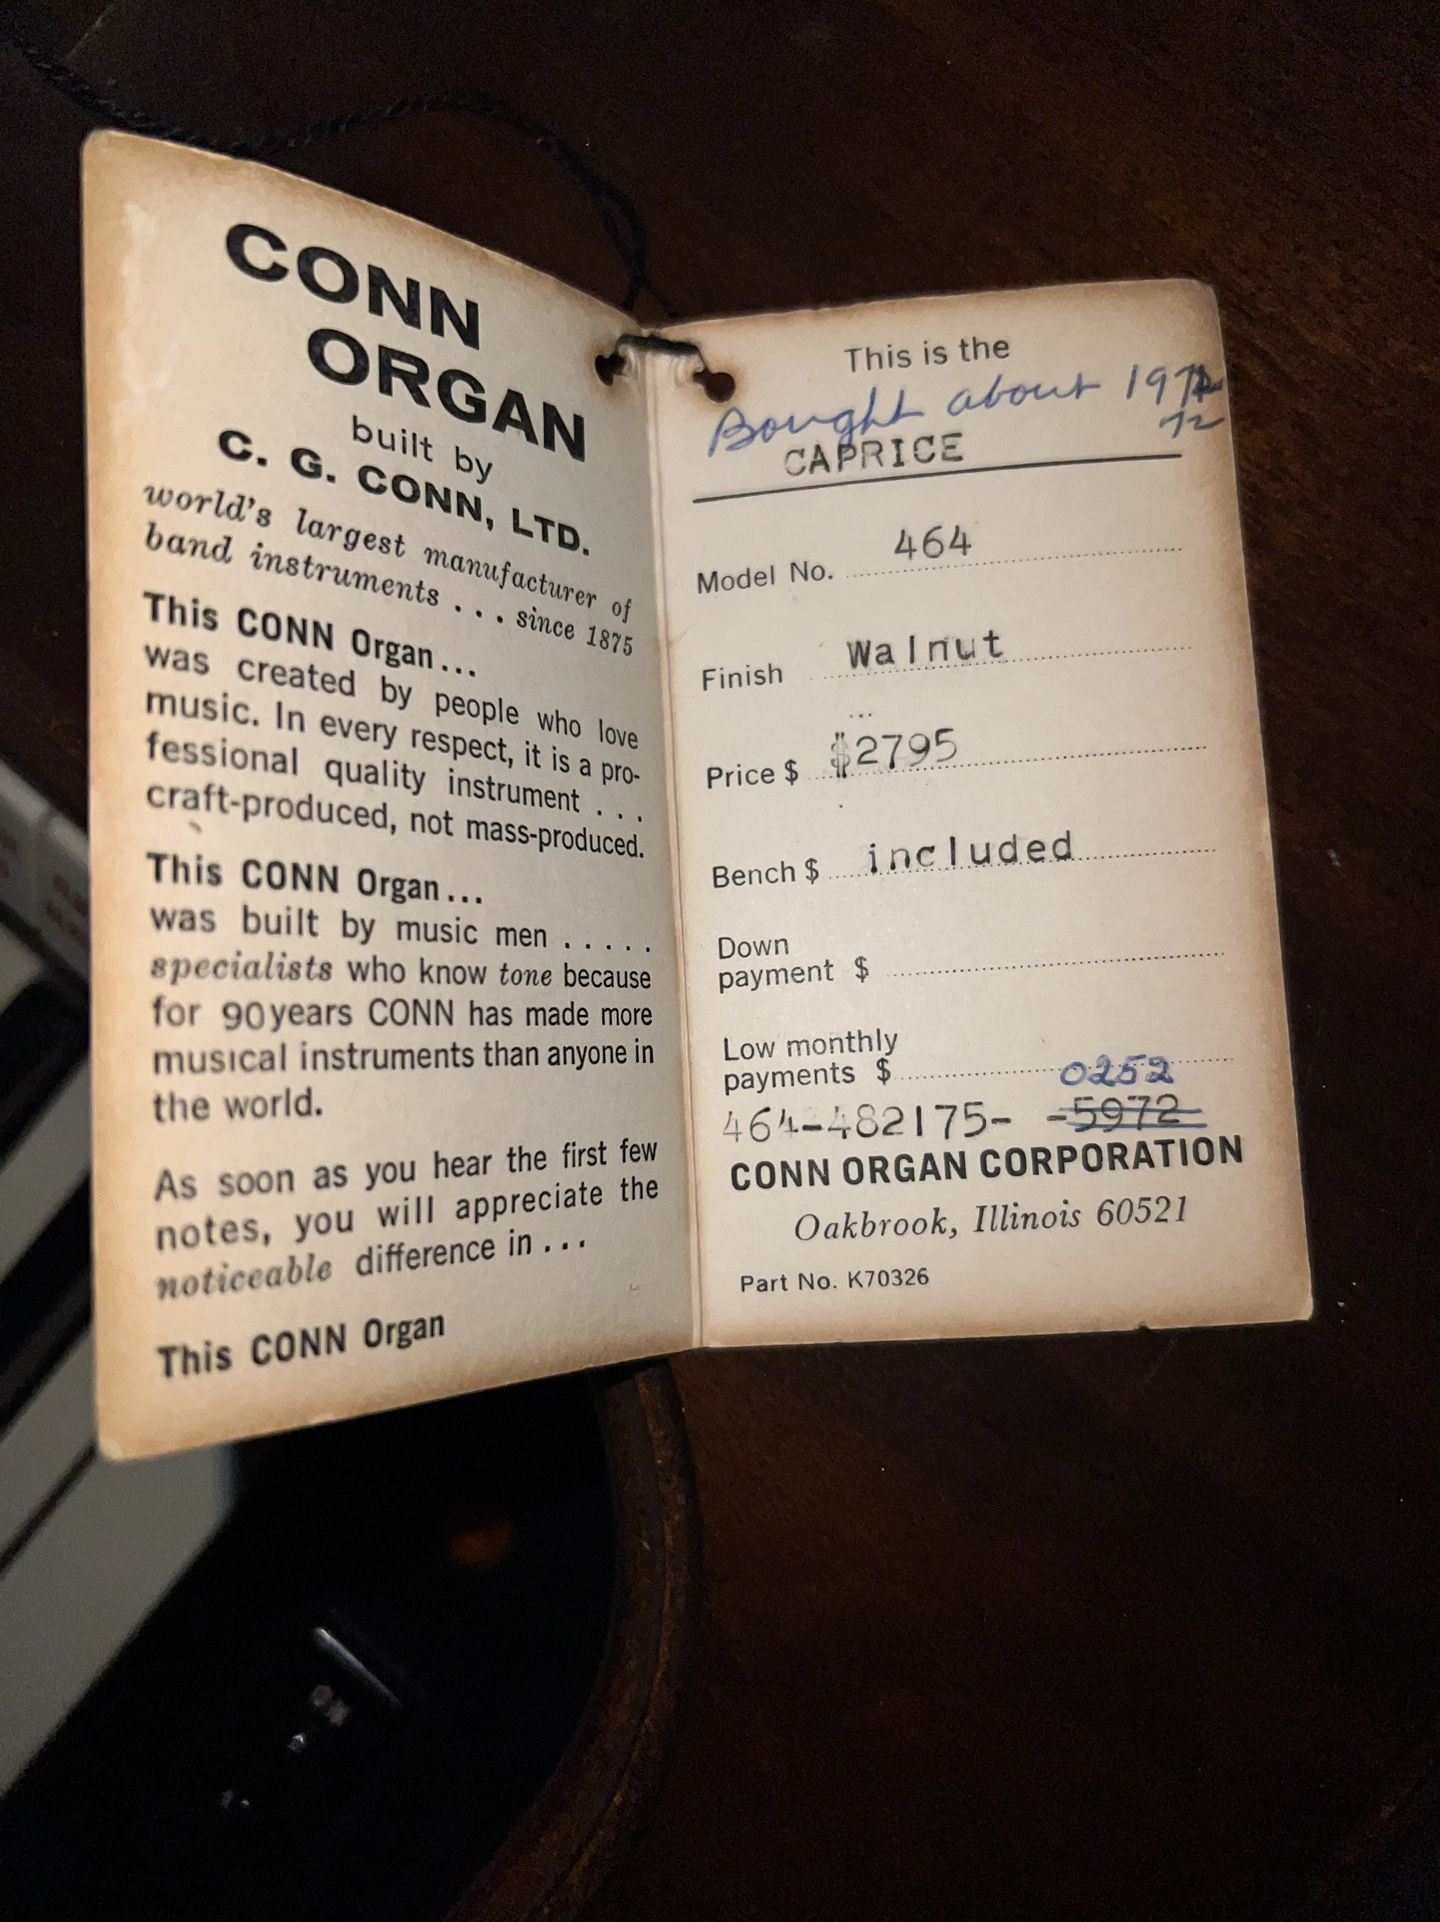 CONN
ORGAN
built by
C. G. CONN, LTD.
world's largest manufacturer of
band instruments . . . since 1875
This CONN Organ...
was created by people who love
music. In every respect, it is a pro-
fessional quality instrument . . .
craft-produced, not mass-produced.
This CONN Organ...
was built by music men . . . . .
specialists who know tone because
for 90 years CONN has made more
musical instruments than anyone in
the world.
As soon as you hear the first few
notes, you will appreciate the
noticeable difference in . . .
This CONN Organ
This is the
Bought about 1971
72
CAPRICE
Model No. 464
Finish Walnut
Price $ $2795
Bench $ included
Down
payment $
Low monthly
payments $
0252
464-482175- -5972
CONN ORGAN CORPORATION
Oakbrook, Illinois 60521
Part No. K70326